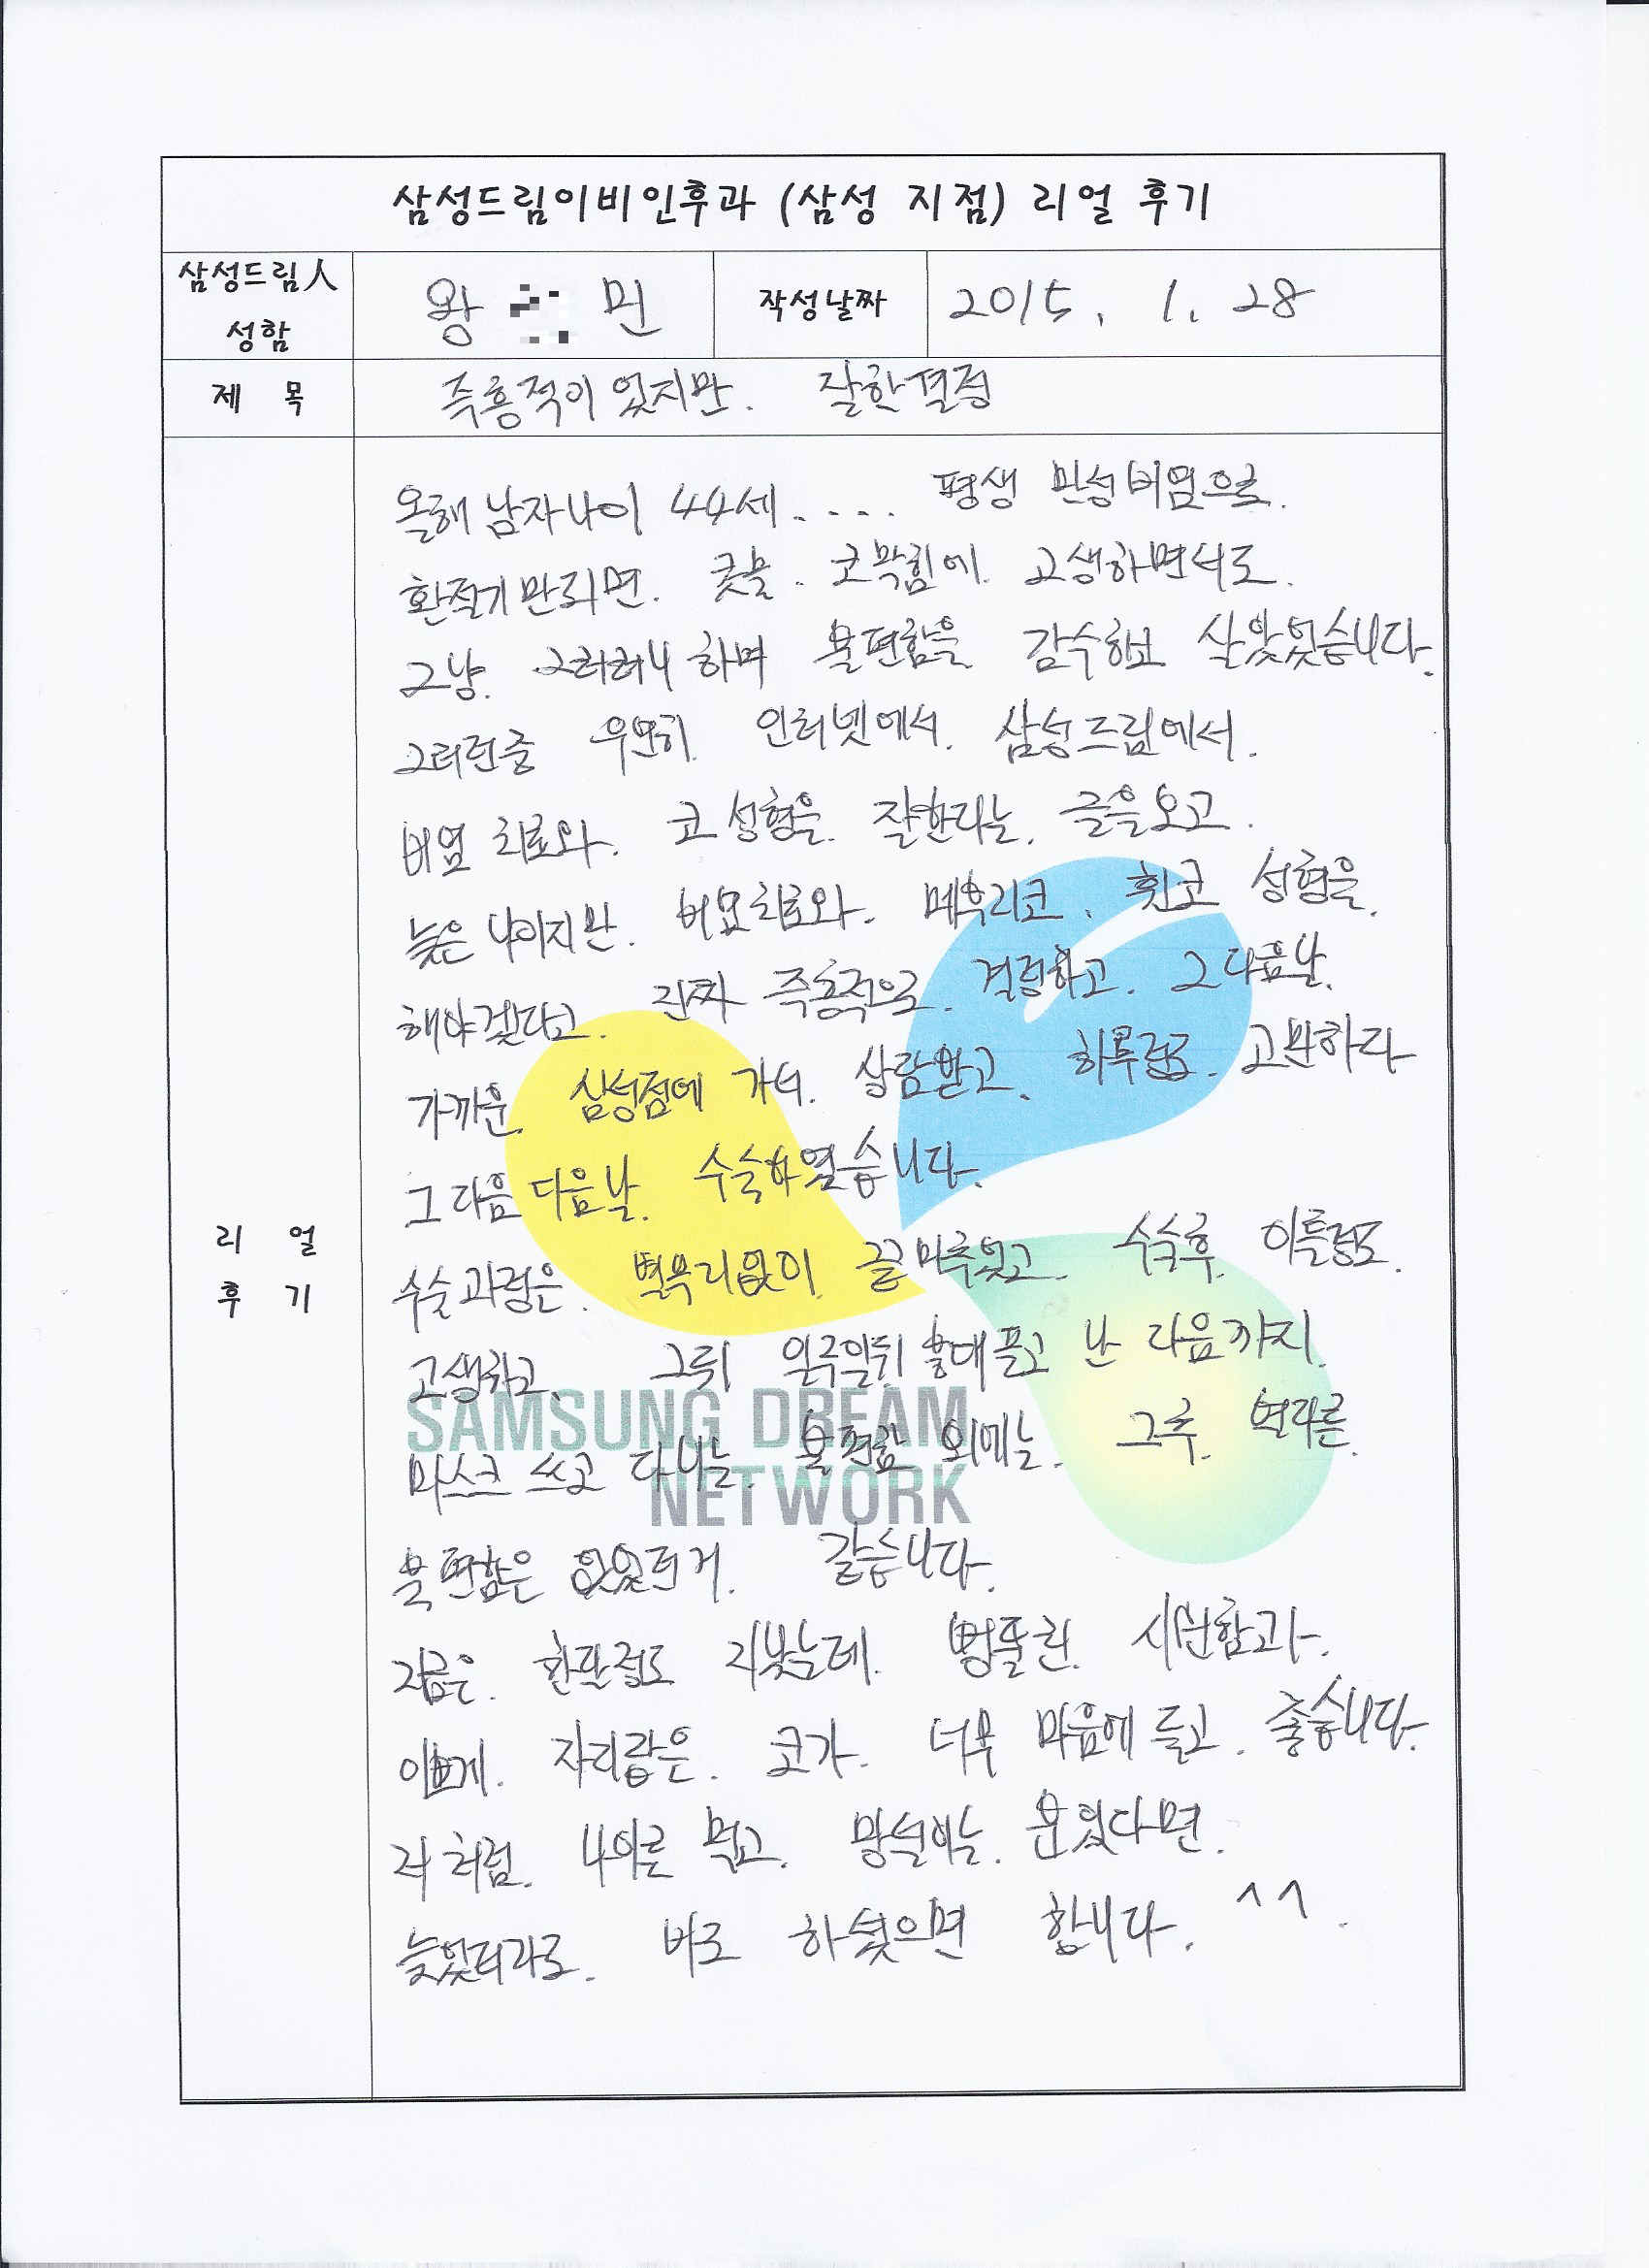 삼성드림이비인후과 (삼성 지점) 리얼 후기
삼성드림人 성함
왕 민
작성날짜
2015. 1. 28
제 목
즉흥적이었지만. 잘한결정
리 얼 후 기
올해 남자나이 44세..... 평생 만성비염으로.
환절기만되면. 콧물. 코막힘에. 고생하면서도.
그냥. 그러려니 하며 불편함을 감수하고 살았었습니다.
그러던중 우연히. 인터넷에서. 삼성드림에서.
비염 치료와. 코성형을. 잘한다는. 글을보고.
늦은 나이지만. 비염치료와. 매부리코. 휜코 성형을.
해야겠다고. 진짜 즉흥적으로. 결정하고. 그 다음날.
가까운. 삼성점에 가서. 상담받고. 하루정도. 고민하다
그 다음 다음날. 수술하였습니다.
수술과정은. 별무리없이. 끝마추었고. 수술후. 이틀정도.
고생하고. 그뒤 일주일뒤 붕대풀고 난 다음까지.
마스크 쓰고 다니는. 불편함 외에는. 그후. 별다른.
불편함은 없었던거. 같습니다.
지금은. 한달정도 지났는데. 뻥뚫린. 시원함과.
이쁘게. 자리잡은. 코가. 너무 마음에 들고. 좋습니다.
저처럼. 나이를 먹고. 망설이는. 분있다면.
늦었더라도. 바로 하셨으면 합니다. ^^.
SAMSUNG DREAM
NETWORK